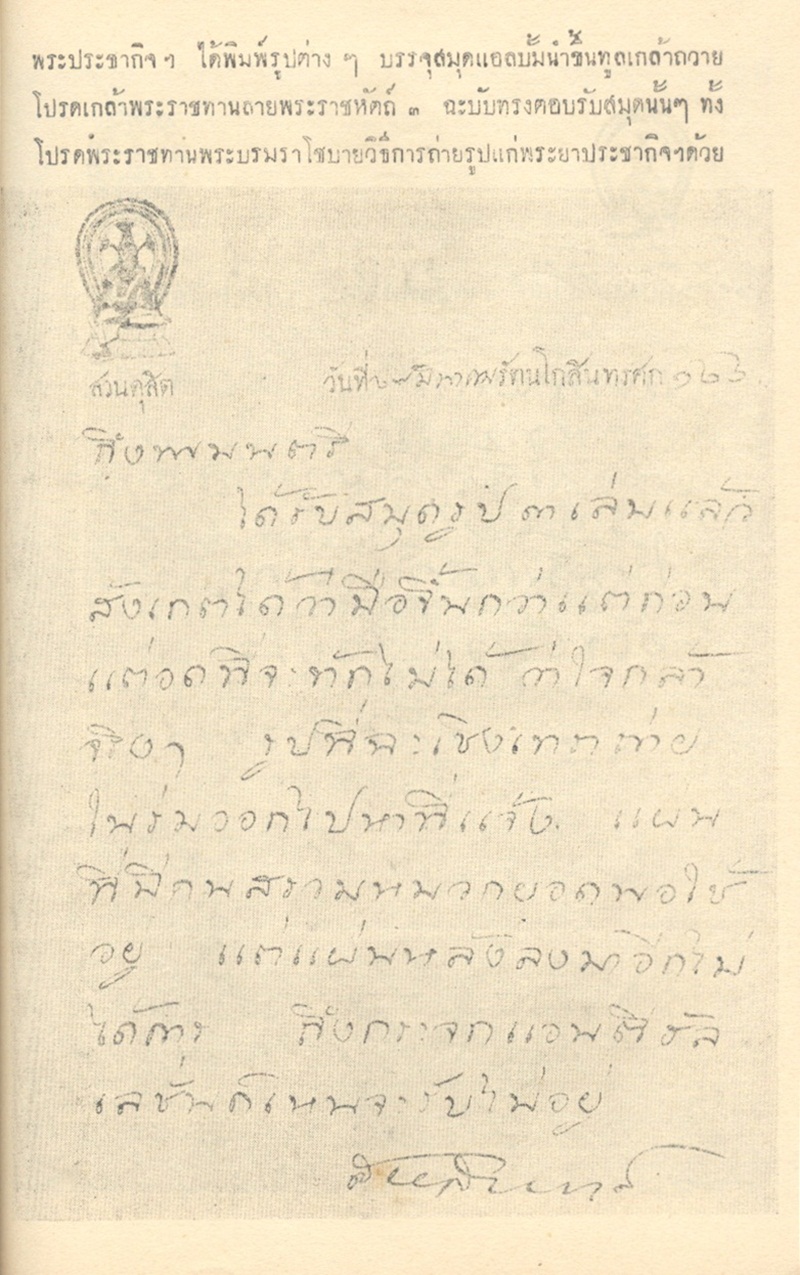 พระประชากิจฯ ได้พิมพ์รูปต่าง ๆ บรรจุสมุดแอลบั้มนำขึ้นทูลเกล้าถวาย
โปรดเกล้าพระราชทานลายพระราชหัตถ์ ๓ ฉะบับทรงตอบรับสมุดนั้นๆ ทั้ง
โปรดพระราชทานพระบรมราโชบายวิธีการถ่ายรูปแก่พระยาประชากิจฯด้วย
สวนดุสิต วันที่ รัตนโกสินทรศก
ถึง
ได้รับสมุดรูป ๓ เล่มแล้ว
สังเกตได้ว่ามือขึ้นกว่าแต่ก่อน
แต่อดที่จะทักไม่ได้ ว่าใจกล้า
จริงๆ รูปที่ฉะเชิงเทราถ่าย
ในร่มออกไปหาที่แจ้ง แผ่น
ที่มีคนสรวมหมวกยอดพอใช้
อยู่ แต่แผ่นหลังลงมาอีกไม่
ได้การ ถึงกระจกแอนติฮัล
เลชั่นก็เห็นจะรับไม่อยู่